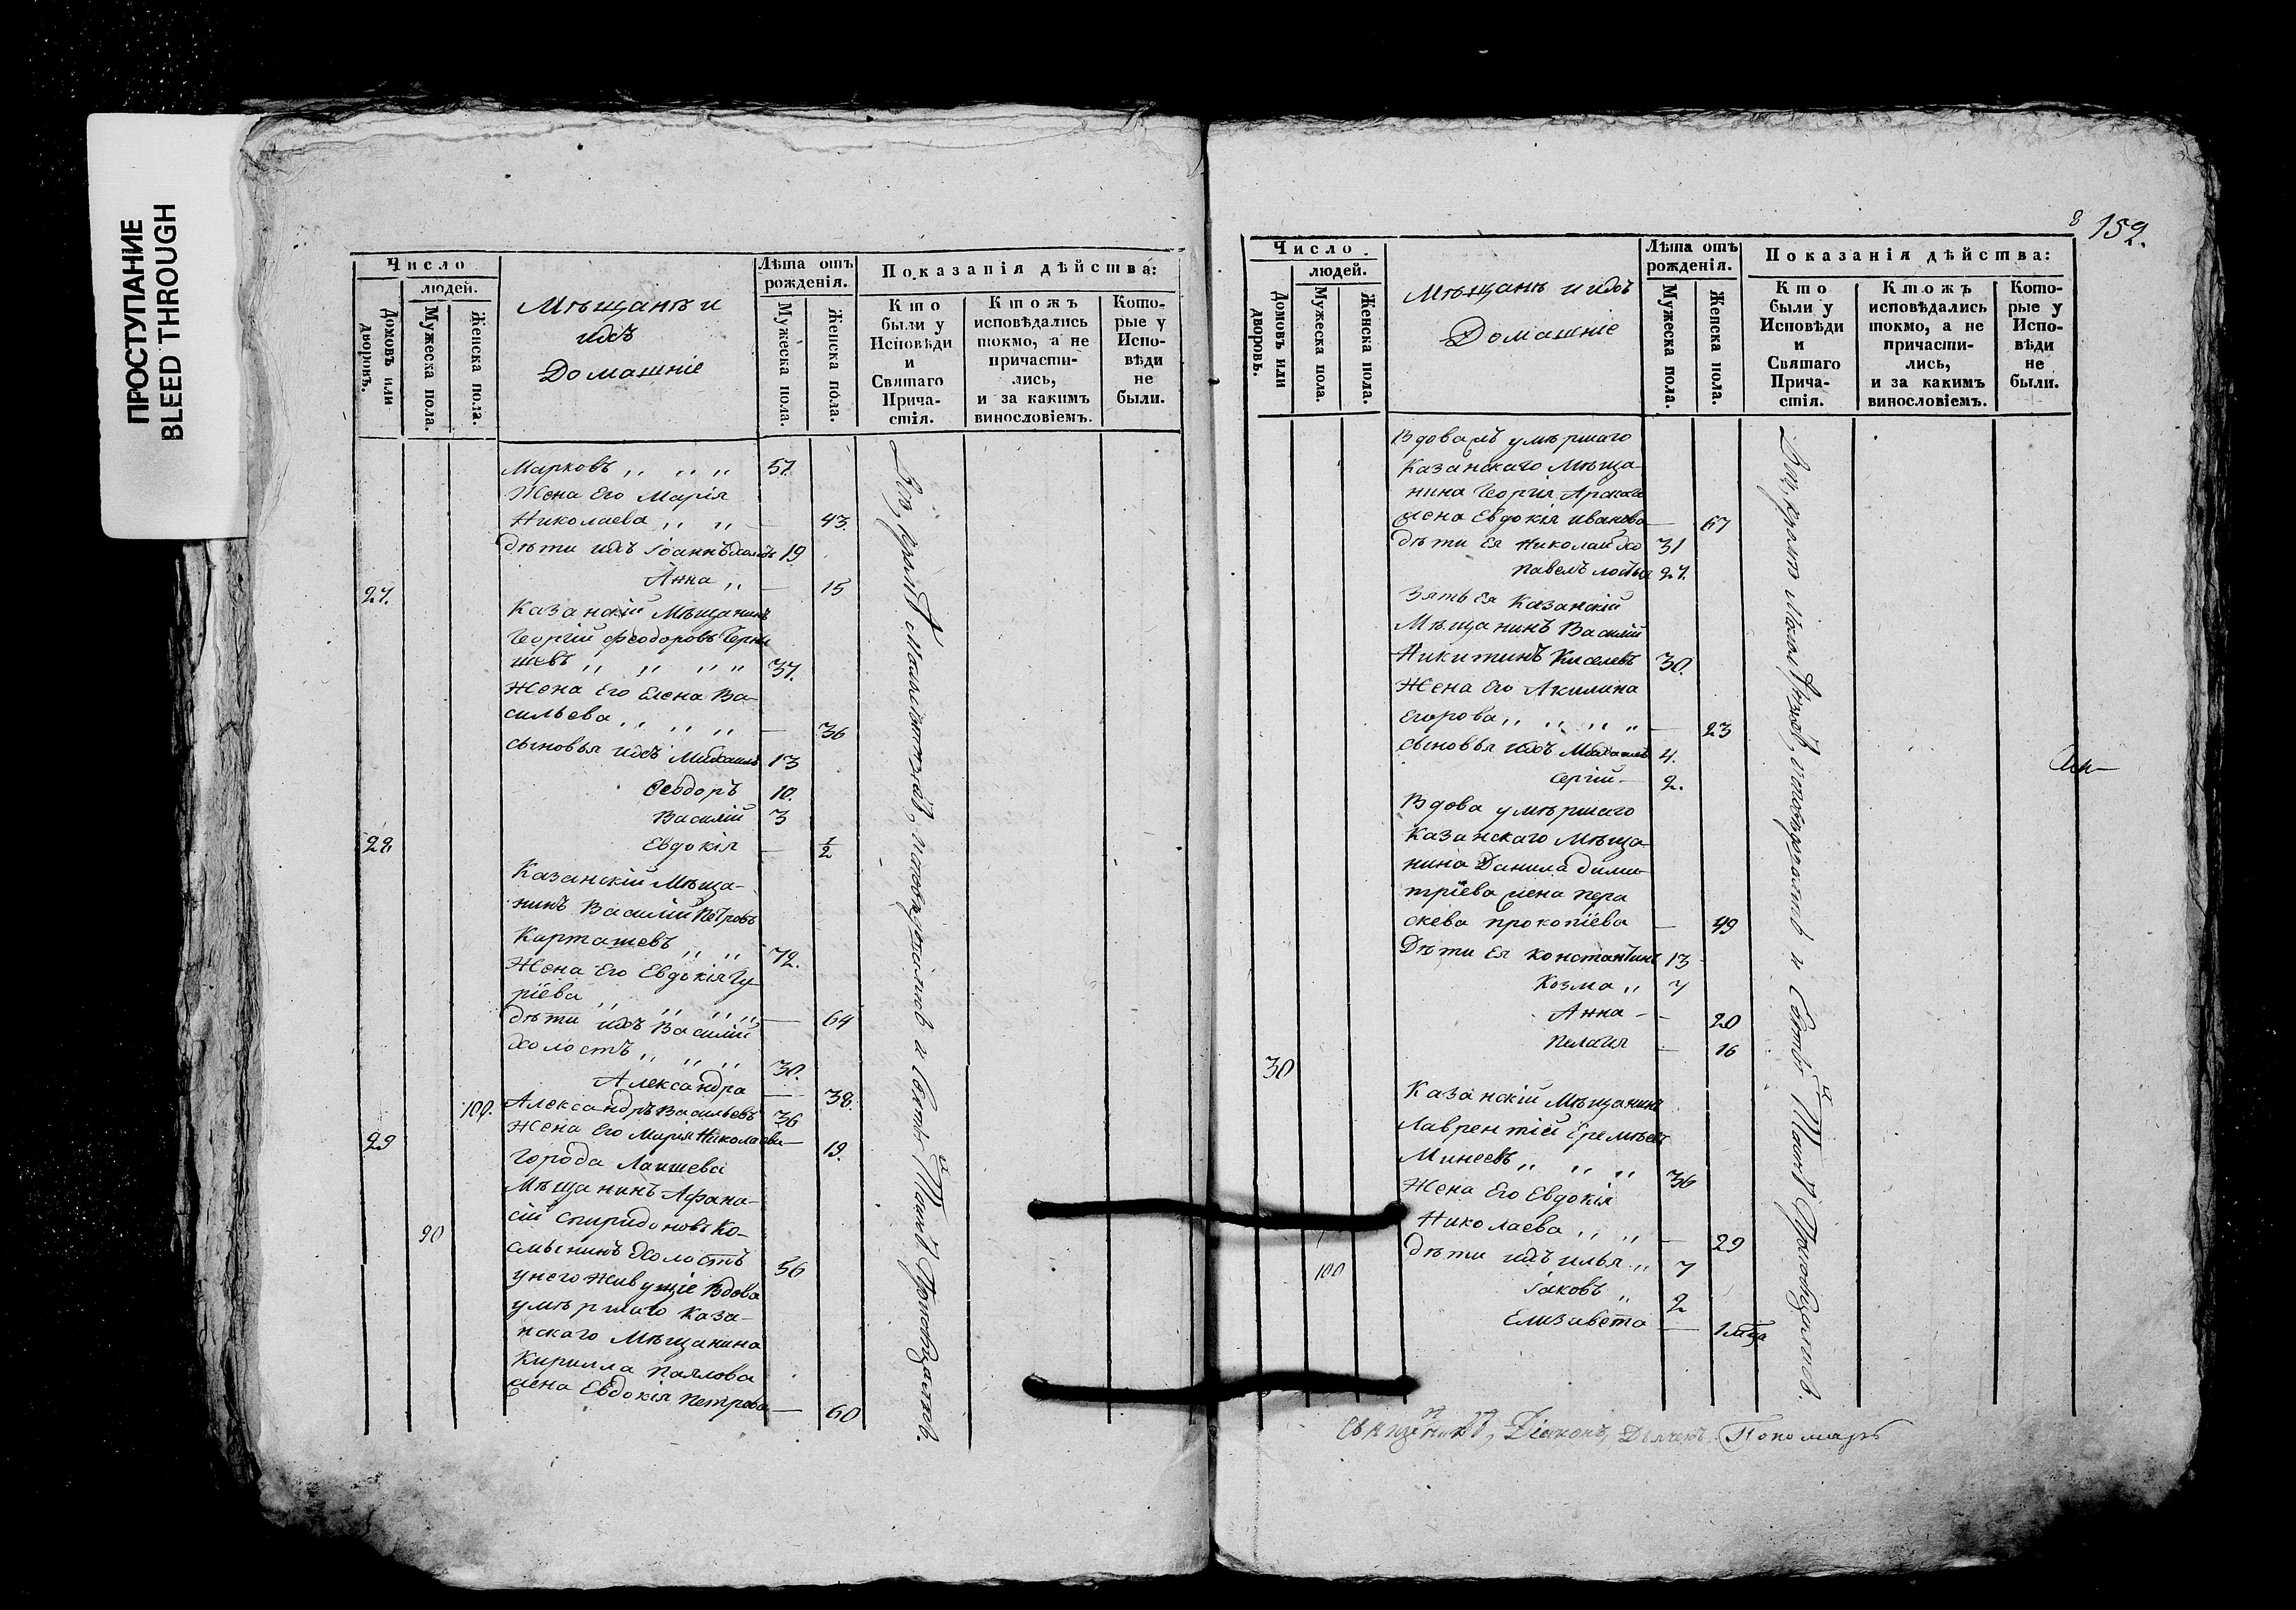 ПРОСТУПАНИЕ
BLEED THROUGH
Число
людей.
Домовъ или дворовъ.
Мужеска пола.
Женска пола.
Мѣщанѣ и
ихъ
Домашніе
Лѣта отъ
рожденія.
Мужеска пола.
Женска пола.
Показанія дѣйства:
Кто
были у
Исповѣди
и
Святаго
Прича-
стія.
Ктожъ
исповѣдались
токмо, а не
причасти-
лись,
и за какимъ
винословіемъ.
Кото-
рые у
Испо-
вѣди
не
были.
Марковъ ,, ,, ,, 57.
Жена Его Марія
Николаева ,, ,, — 43.
дѣти ихъ Іоаннъ холостъ 19
Анна ,, — 15
27.
Казанскій Мѣщанинъ
Георгій Феодоровъ Черны
шевъ ,, ,, ,, ,, 37.
Жена Его Елена Ва-
сильева ,, ,, ,, — 36
сыновья ихъ Михаилъ 13
Ѳеодоръ 10.
Василій 3
28 Евдокія — 1/2
Казанскій Мѣща-
нинъ Василій Петровъ
Карташевъ ,, ,, 72.
Жена Его Евдокія Гу-
ріева ,, ,, ,, ,, — 64
дѣти ихъ Василій
холостъ ,, ,, ,, 30.
Александра — 38.
100. Александръ Васильевъ 36
Жена Его Марія Николаева — 19.
29
города Лаишева
Мѣщанинъ Афана-
сій Спиридоновъ Ко-
90
смынинъ холостъ 56
у него живущіе Вдова
умѣршаго Каза-
нскаго Мѣщанина
Кирилла Павлова
жена Евдокія Петрова — 60
и Святыхъ Таинъ
8 152.
Число
людей.
Домовъ или дворовъ.
Мужеска пола.
Женска пола.
Мѣщанѣ и ихъ
Домашніе
Лѣта отъ
рожденія.
Мужеска пола.
Женска пола.
Показанія дѣйства:
Кто
были у
Исповѣди
и
Святаго
Прича-
стія.
Ктожъ
исповѣдались
токмо, а не
причасти-
лись,
и за какимъ
винословіемъ.
Кото-
рые у
Испо-
вѣди
не
были.
Вдова умѣршаго
Казанскаго Мѣща-
нина Георгія Арскаго
жена Евдокія Иванова — 67
дѣти Ея Николай хо 31
Павелъ лостые 27.
Зять Ея Казанскій
Мѣщанинъ Василій
Никитинъ Киселевъ 30.
Жена Его Акилина
Егорова ,, ,, ,, ,, — 23
сыновья ихъ Михаилъ 4.
Сергій — 2.
Вдова умѣршаго
Казанскаго Мѣща-
нина Данила дими-
тріева жена Пера
скева Прокопіева — 49
Дѣти Ея Константинъ 13
Козма ,, 7
Анна — 20
Пелагія — 16
30
Казанскій Мѣщанинъ
Лаврентій Еремѣевъ
Минеевъ ,, ,, ,, 36
Жена Его Евдокія
Николаева ,, ,, — 29
100 дѣти ихъ Илья ,, 7
Іаковъ ,, 2
Елизавета — 1 мца
Всѣ, кромѣ малолѣтныхъ, исповѣдались и Святыхъ Таинъ Пріобщались.
Священникъ, Діаконъ, Дьячекъ. Пономарь